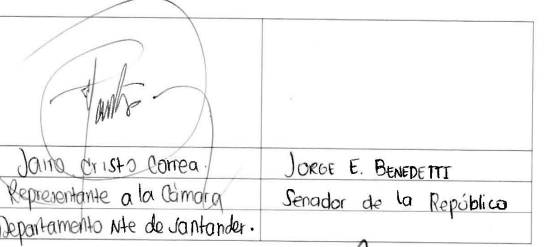 Jairo Cristo Correa.
Representante a la Cámara
Departamento Nte de Santander.
JORGE E. BENEDETTI
Senador de la República